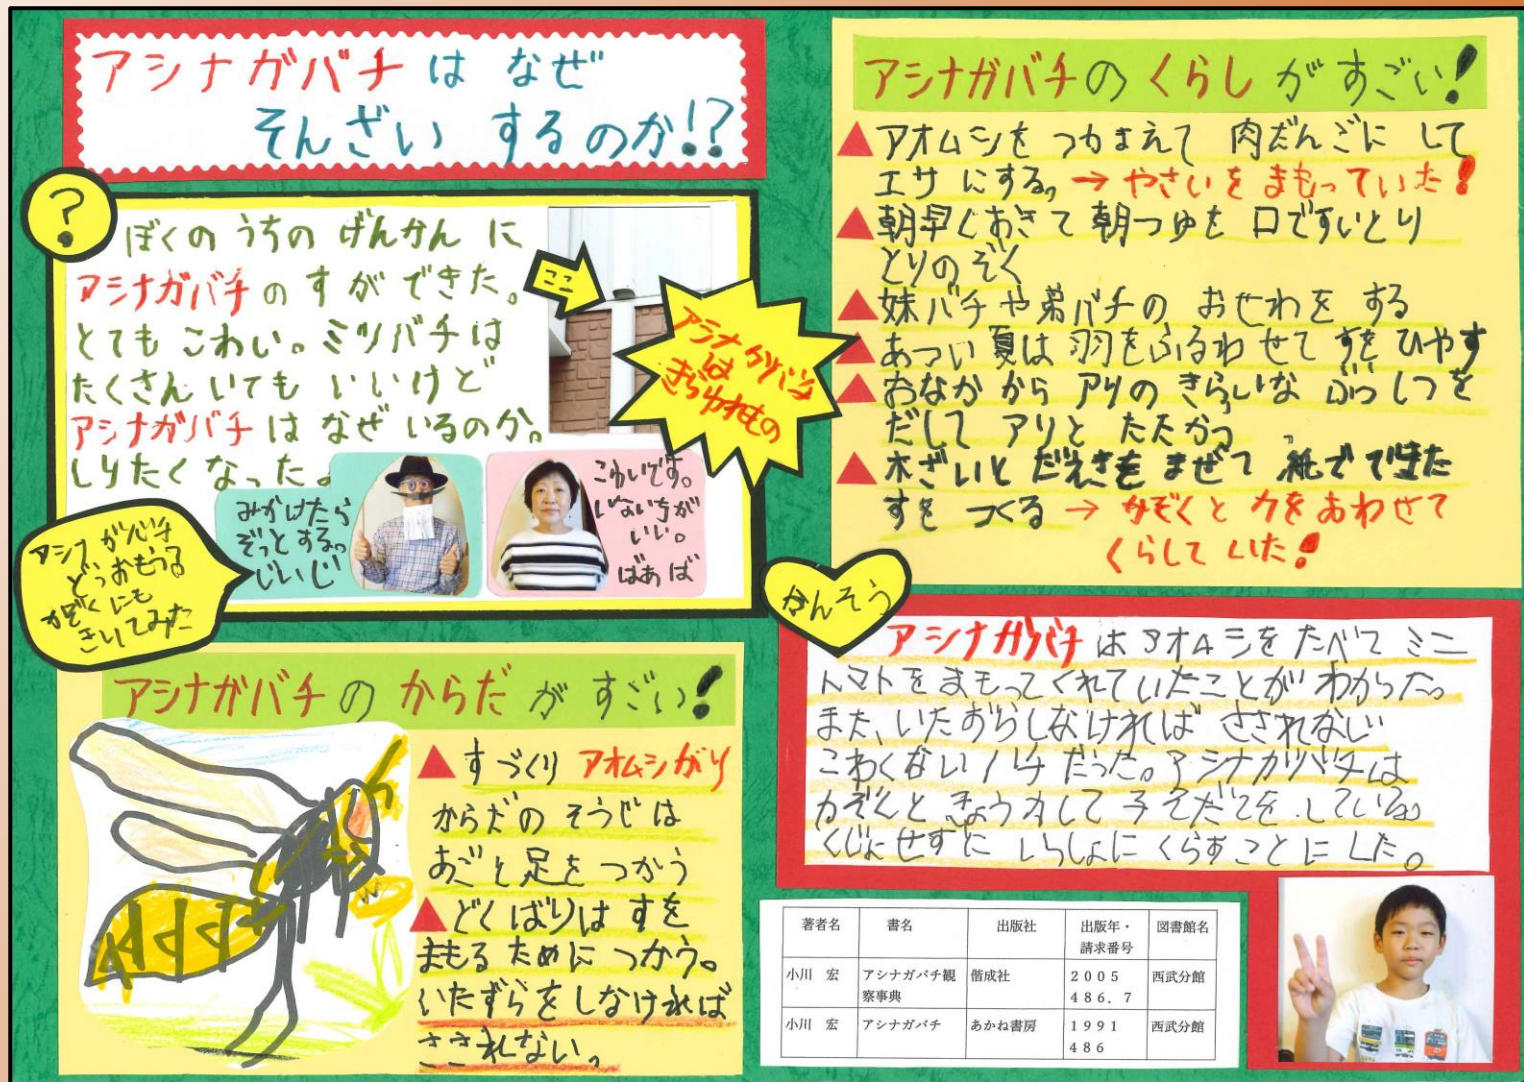 アシナガバチ は なぜ
そんざい するのか!?
?
ぼくの うちの げんかん に
アシナガバチ の す が できた。
とても こわい。ミツバチは
たくさん いても いいけど
アシナガバチ は なぜ いるのか。
しりたく なった。
ここ
アシナガバチ
は
きらわれもの
アシナガバチ
どうおもうる
かぞくにも
きいてみた
みかけたら
ぞっとする。
じいじ
こわいです。
いない方が
いい。
ばあば
アシナガバチ の からだ が すごい!
▲すづくり アオムシがり
からだの そうじ は
あごと足を つかう
▲どくばりは すを
まもる ために つかう。
いたずらを しなければ
さされない。
アシナガバチの くらし が すごい!
▲アオムシを つかまえて 肉だんごに して
エサ にする。→ やさいを まもっていた!
▲朝早くおきて 朝つゆを 口ですいとり
とりのぞく
▲妹バチや弟バチの おせわを する
▲あつい 夏は 羽をふるわ せて すを ひやす
▲おなか から アリの きらいな ぶっしつを
だして アリと たたかう
▲木ざいと だえきを まぜて 紙で できた
すを つくる → かぞくと 力を あわせて
くらして いた!
かんそう
アシナガバチ は アオムシを たべて ミニ
トマトを まもってくれていたことが わかった。
また、いたずらしなければ さされない
こわくないハチ だった。アシナガバチは
かぞくと きょう力して 子そだてを している。
くじょせずに いっしょに くらすことに した。
著者名 書名 出版社 出版年・請求番号 図書館名
小川 宏 アシナガバチ観察事典 偕成社 2005 486.7 西武分館
小川 宏 アシナガバチ あかね書房 1991 486 西武分館